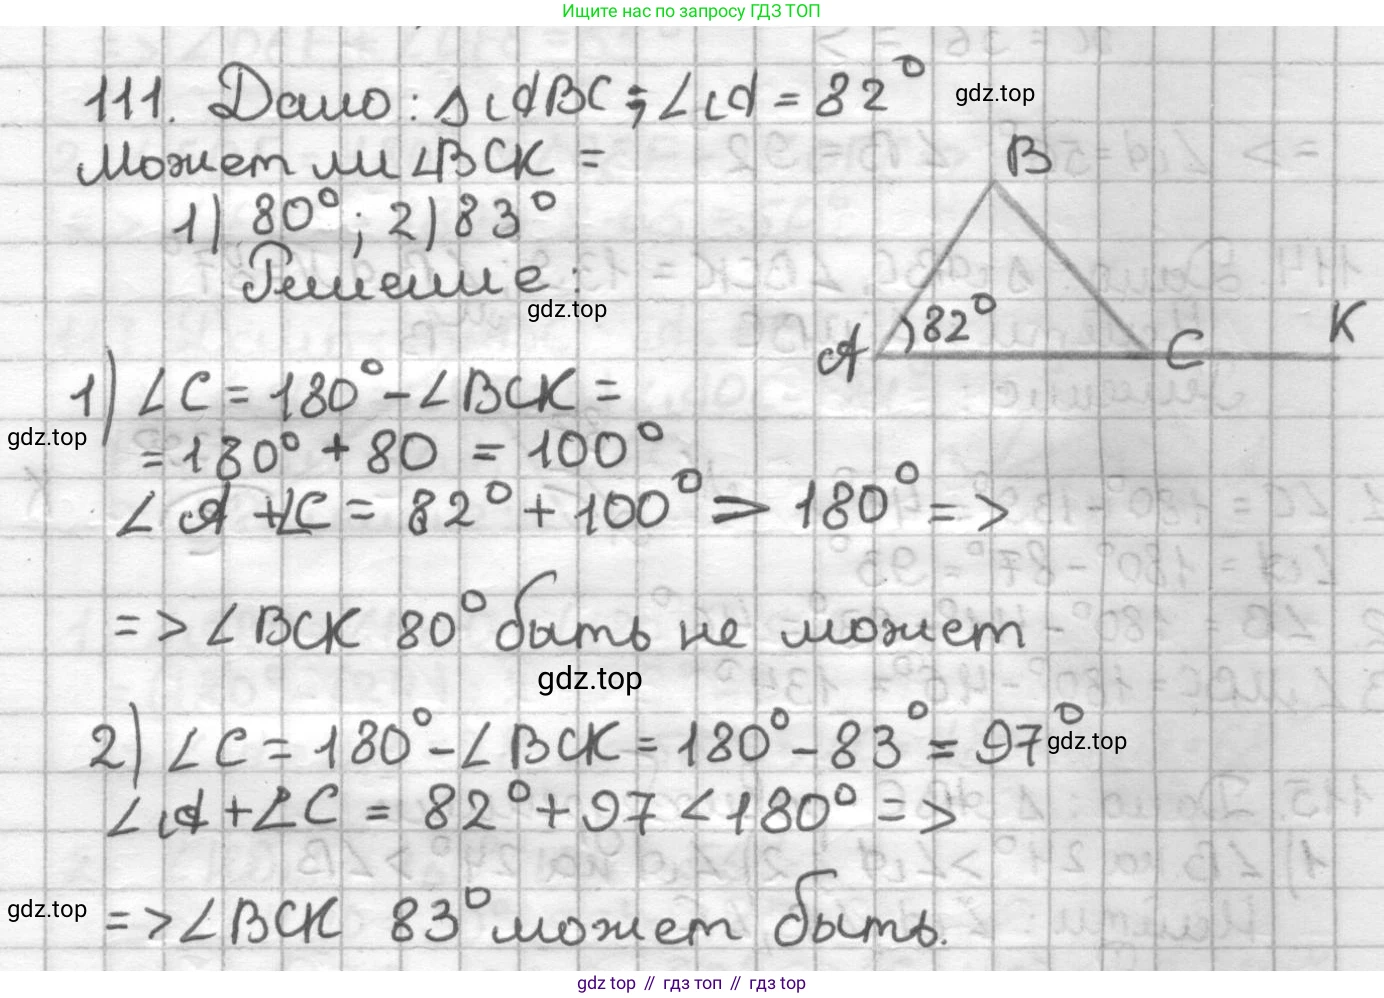 Ищите нас по запросу ГДЗ ТОП
111. Дано: Δ ABC; ∠A = 82°
gdz.top
Может ли ∠BCK =
1) 80°; 2) 83°
Решение:
gdz.top
B
82°
A
C
K
1) ∠C = 180° - ∠BCK =
gdz.top
= 180° + 80 = 100°
∠A + ∠C = 82° + 100° > 180° =>
=> ∠BCK 80° быть не может
gdz.top
2) ∠C = 180° - ∠BCK = 180° - 83° = 97°
gdz.top
∠A + ∠C = 82° + 97 < 180° =>
gdz.top
=> ∠BCK 83° может быть.
gdz top // гдз топ // gdz top